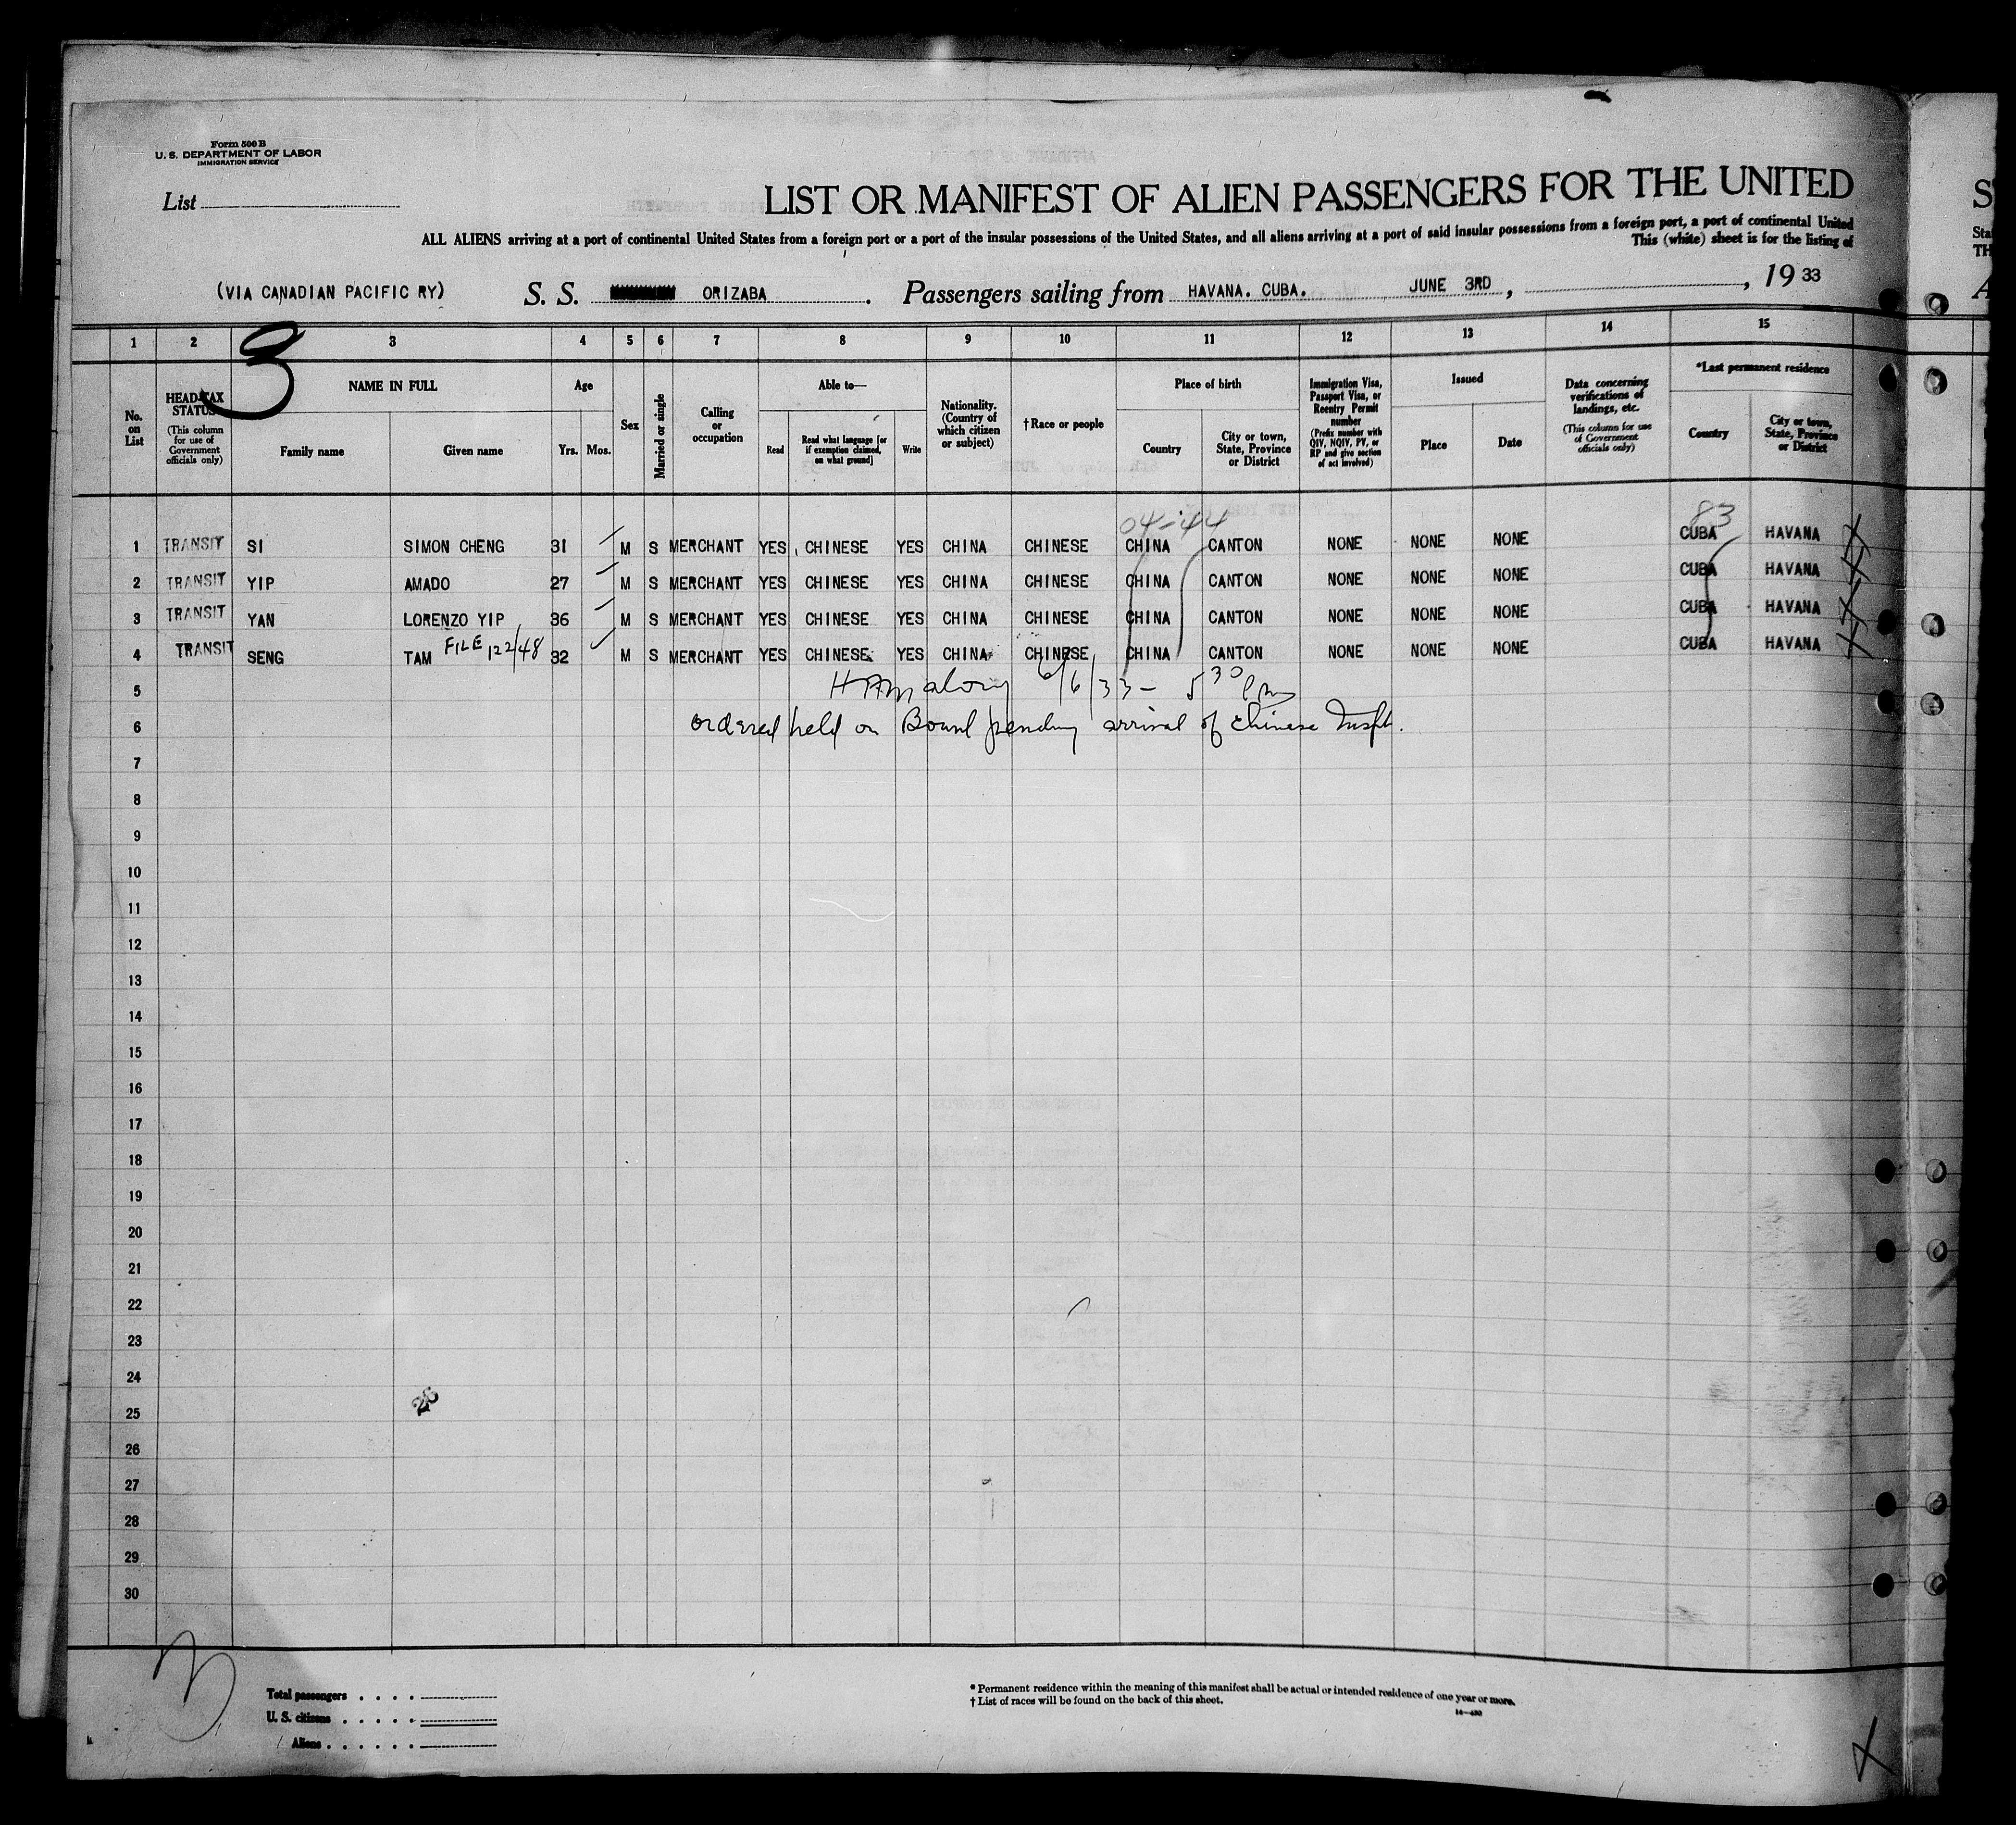 Form 500 B
U. S. DEPARTMENT OF LABOR
IMMIGRATION SERVICE
List
LIST OR MANIFEST OF ALIEN PASSENGERS FOR THE UNITED
S
ALL ALIENS arriving at a port of continental United States from a foreign port or a port of the insular possessions of the United States, and all aliens arriving at a port of said insular possessions from a foreign port, a port of continental United
Sta
This (white) sheet is for the listing of
TH
(VIA CANADIAN PACIFIC RY) S. S. ORIZABA . Passengers sailing from HAVANA. CUBA. JUNE 3RD , , 19 33
A
3
1 2 3 4 5 6 7 8 9 10 11 12 13 14 15
No. on List
HEAD-TAX STATUS
(This column for use of Government officials only)
NAME IN FULL
Family name Given name
Age
Yrs. Mos.
Sex
Married or single
Calling or occupation
Able to—
Read
Read what language [or if exemption claimed, on what ground]
Write
Nationality. (Country of which citizen or subject)
†Race or people
Place of birth
Country
City or town, State, Province or District
Immigration Visa, Passport Visa, or Reentry Permit number
(Prefix number with QIV, NQIV, PV, or RP and give section of act involved)
Issued
Place Date
Data concerning verifications of landings, etc.
(This column for use of Government officials only)
*Last permanent residence
Country
City or town, State, Province or District
04-44 83
1 TRANSIT SI SIMON CHENG 31 M S MERCHANT YES CHINESE YES CHINA CHINESE CHINA CANTON NONE NONE NONE CUBA HAVANA
2 TRANSIT YIP AMADO 27 M S MERCHANT YES CHINESE YES CHINA CHINESE CHINA CANTON NONE NONE NONE CUBA HAVANA
3 TRANSIT YAN LORENZO YIP 36 M S MERCHANT YES CHINESE YES CHINA CHINESE CHINA CANTON NONE NONE NONE CUBA HAVANA
4 TRANSIT SENG TAM FILE 122/48 32 M S MERCHANT YES CHINESE YES CHINA CHINESE CHINA CANTON NONE NONE NONE CUBA HAVANA
5 6/6/33 - 5 30 pm
6 ordered held on Board pending arrival of Chinese Insptr.
7
8
9
10
11
12
13
14
15
16
17
18
19
20
21
22
23
24
25
26
27
28
29
30
Total passengers
U. S. citizens
Aliens
* Permanent residence within the meaning of this manifest shall be actual or intended residence of one year or more.
† List of races will be found on the back of this sheet.